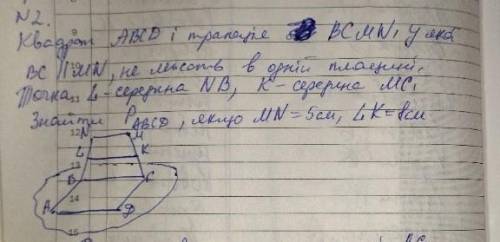 N2.
Квадрат ABCD і трапеція BCMN, у якої
BC || MN, не лежать в одній площині.
Точка L-середина NB, K-середина MC,
Знайти P ABCD, якщо MN=5см, LK=8см
N M
L K
B C
A D